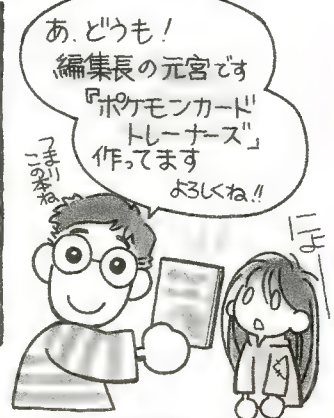 あ、どうも!
編集長の元宮です
『ポケモンカード
トレーナーズ』
作ってます
よろしくね!!
つまり
この本ね
にょ